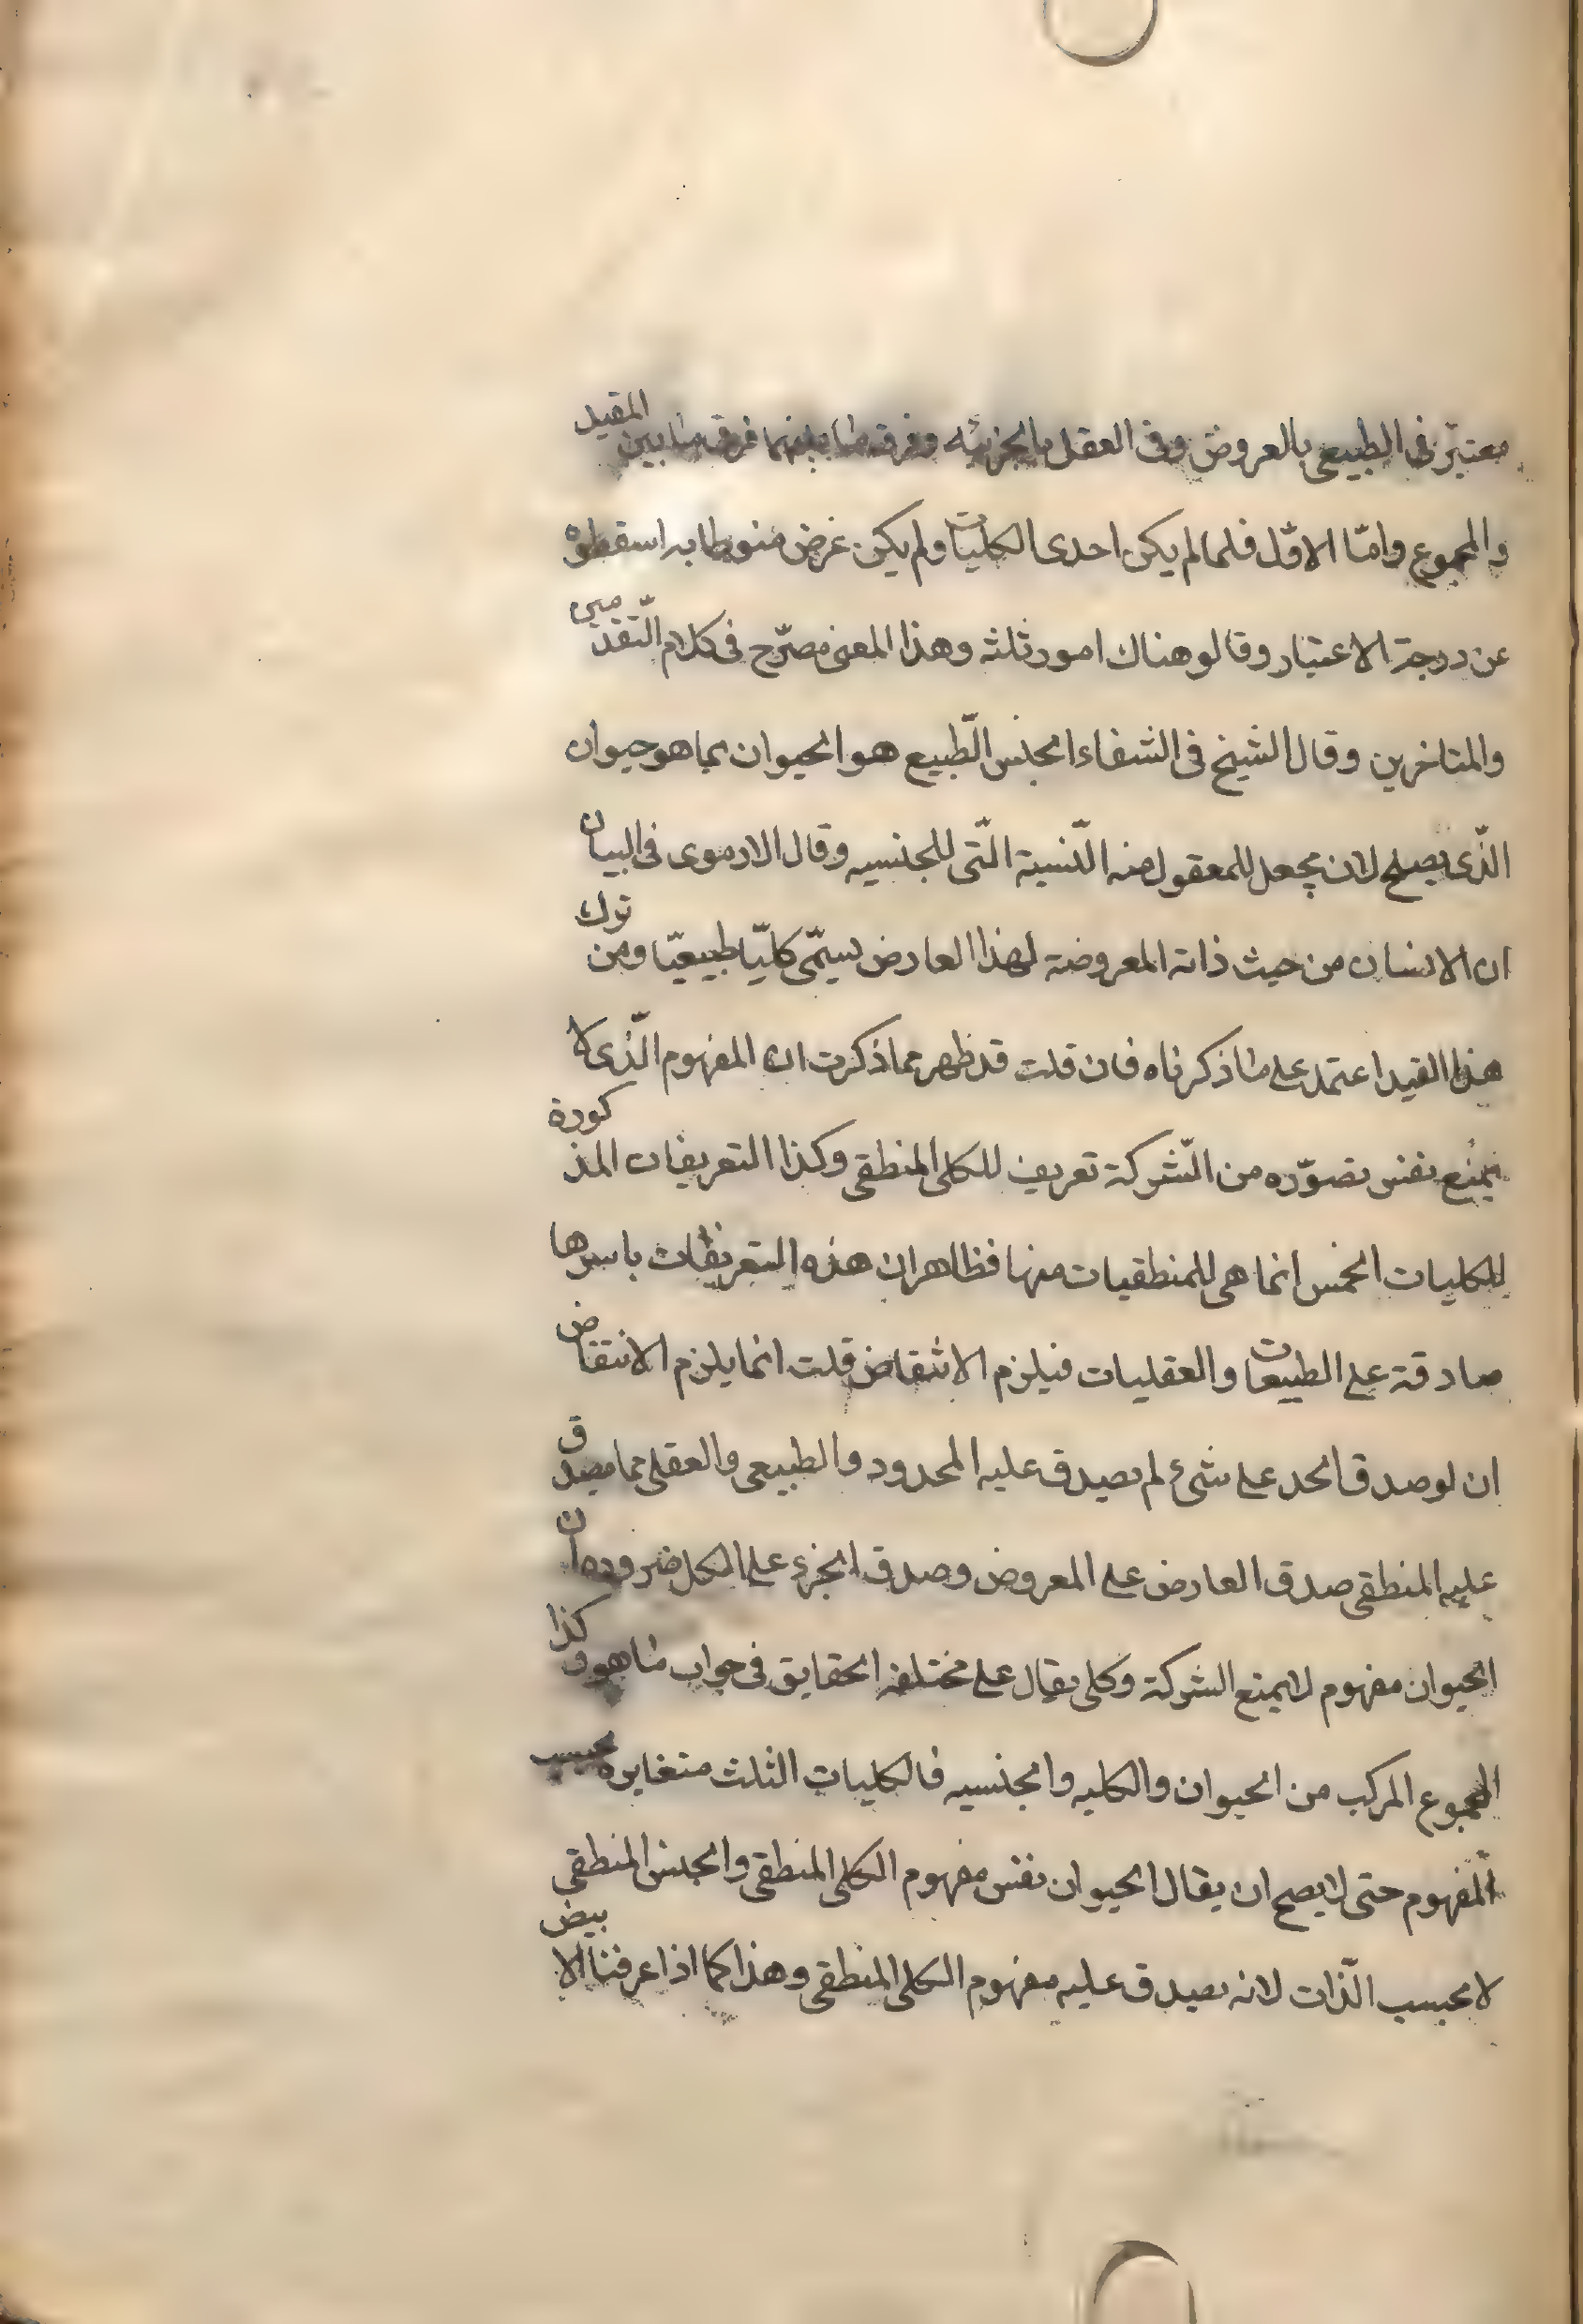 معتبر فى الطبيعى بالعروض وفى العقل بالجزئيه وفرق ما بينهما فرق ما بين المقيد
والمجموع وامّا الاوّل فلما لم يكن احدى الكليات ولم يكن غرض منوطا به اسقطوه
عن درجة الاعتبار وقالو هناك امور ثلثه وهذا المعنى مصرّح فى كلام المتقدمين
والمتاخرين وقال الشيخ فى الشفاء الجنس الطّبيع هو الحيوان بما هو حيوان
الّذى يصلح لان يجعل للمعقول منه النّسبة الّتى للجنسيه وقال الارموى فى البيان
ان الانسان من حيث ذاته المعروضة لهذا العارض يسمّى كليّا طبيعيّا ومن ترك
هذا القيد اعتمد على ما ذكرناه فان قلت قد ظهر مما ذكرت ان المفهوم الّذى لا
يمنع نفس تصوّره من الشّركة تعريف للكلى المنطقى وكذا التعريفات المذكورة
للكليات الخمس انما هى للمنطقيات منها فظاهر ان هذه التعريفات باسرها
صادقة على الطبيعات والعقليات فيلزم الانتقاض قلت انما يلزم الانتقاض
ان لو صدق الحد على شئ لم يصدق عليه المحدود والطبيعى والعقلى مما يصدق
عليه المنطقى صدق العارض على المعروض وصدق الجزء على الكل ضروره ان
الحيوان مفهوم لا يمنع الشركة وكلى يقال على مختلفه الحقايق فى جواب ما هو وكذا
المجموع المركب من الحيوان والكليه والجنسيه فالكليات الثلث متغايره بحسب
المفهوم حتى لا يصح ان يقال الحيوان نفس مفهوم الكلى المنطقى والجنس المنطقى
لا بحسب الذّات لانه يصدق عليه مفهوم الكلى المنطقى وهذا كما اذا عرفنا الابيض